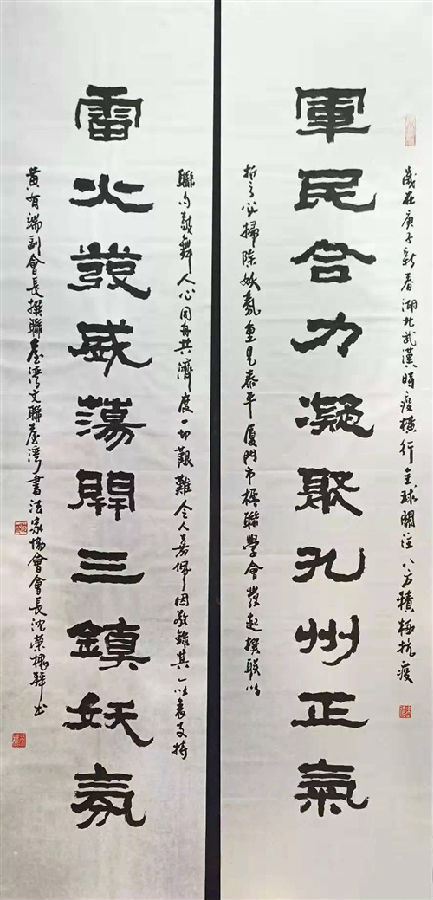 歲在庚子新春湖北武漢時疫橫行全球關注八方積極抗疫
軍民合力凝聚九州正氣
必掃除妖氛重見泰平廈門市楹聯學會發起撰联以
聯句鼓舞人心同舟共濟度一切艱難令人嘉佩因敬錄其一以表支持
雷火發威蕩開三鎮妖氛
黃有端副會長撰聯臺灣文聯臺灣書法家協會會長沈榮槐拜書